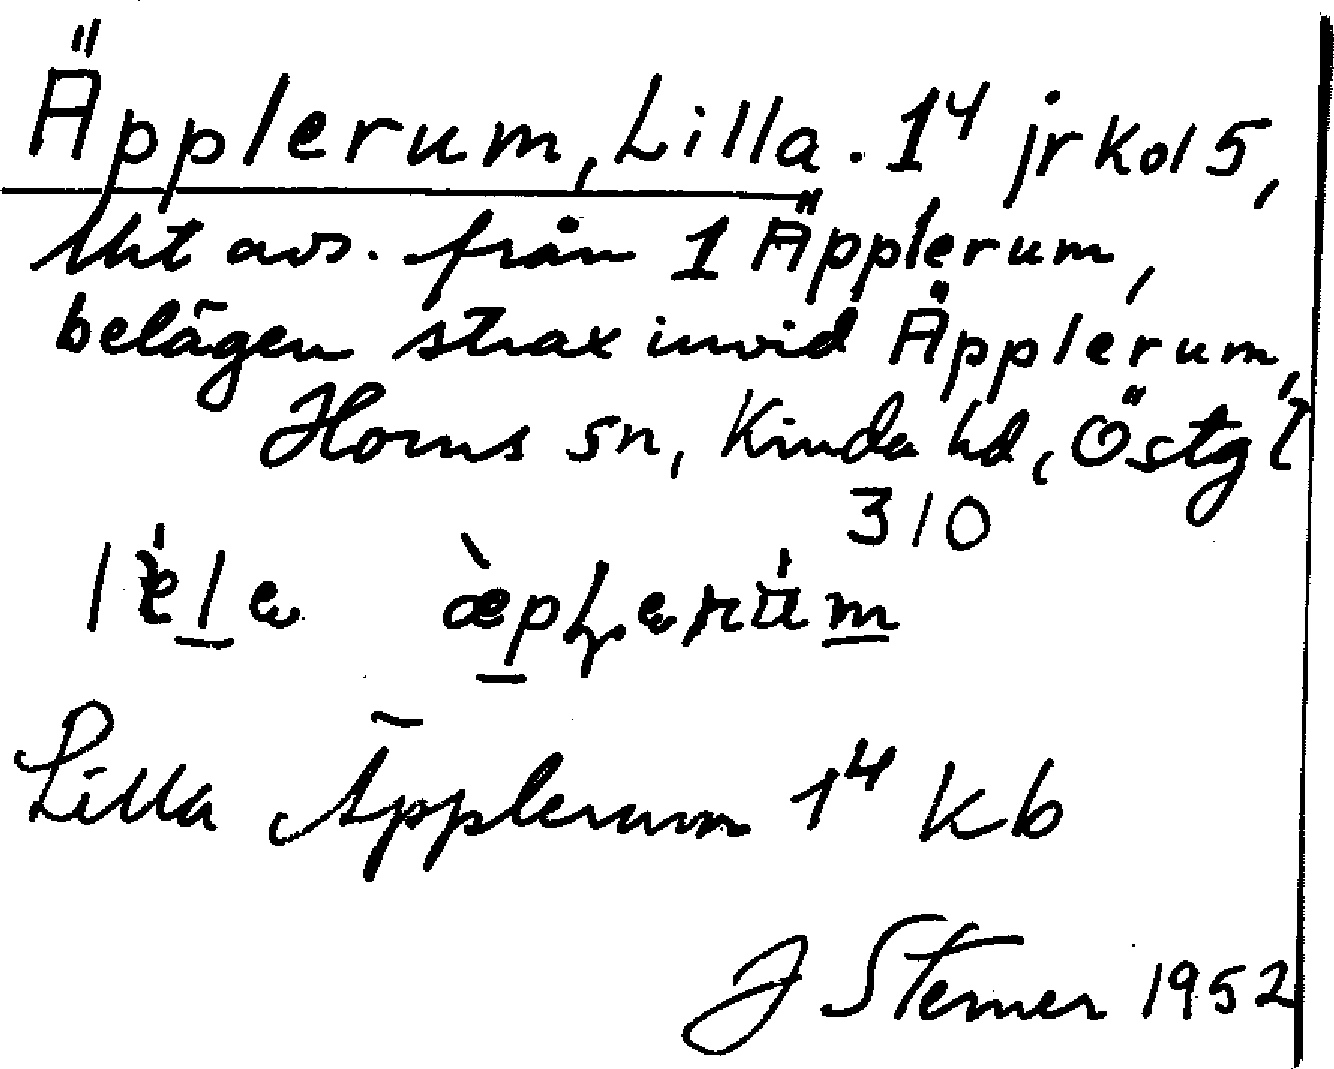 Äpplerum, Lilla. 1⁴ jr kol 5,
lht avs. från 1 Äpplerum,
belägen strax invid Äpplerum,
Horns sn, Kinda hd, Östg l
310
Lilla Äpplerum 1⁴ kb
J Sterner 1952